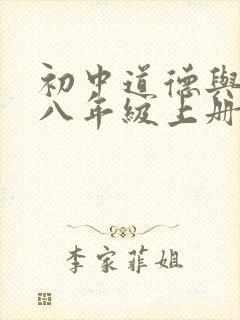 初中道德與
八年級上冊
李家菲姐